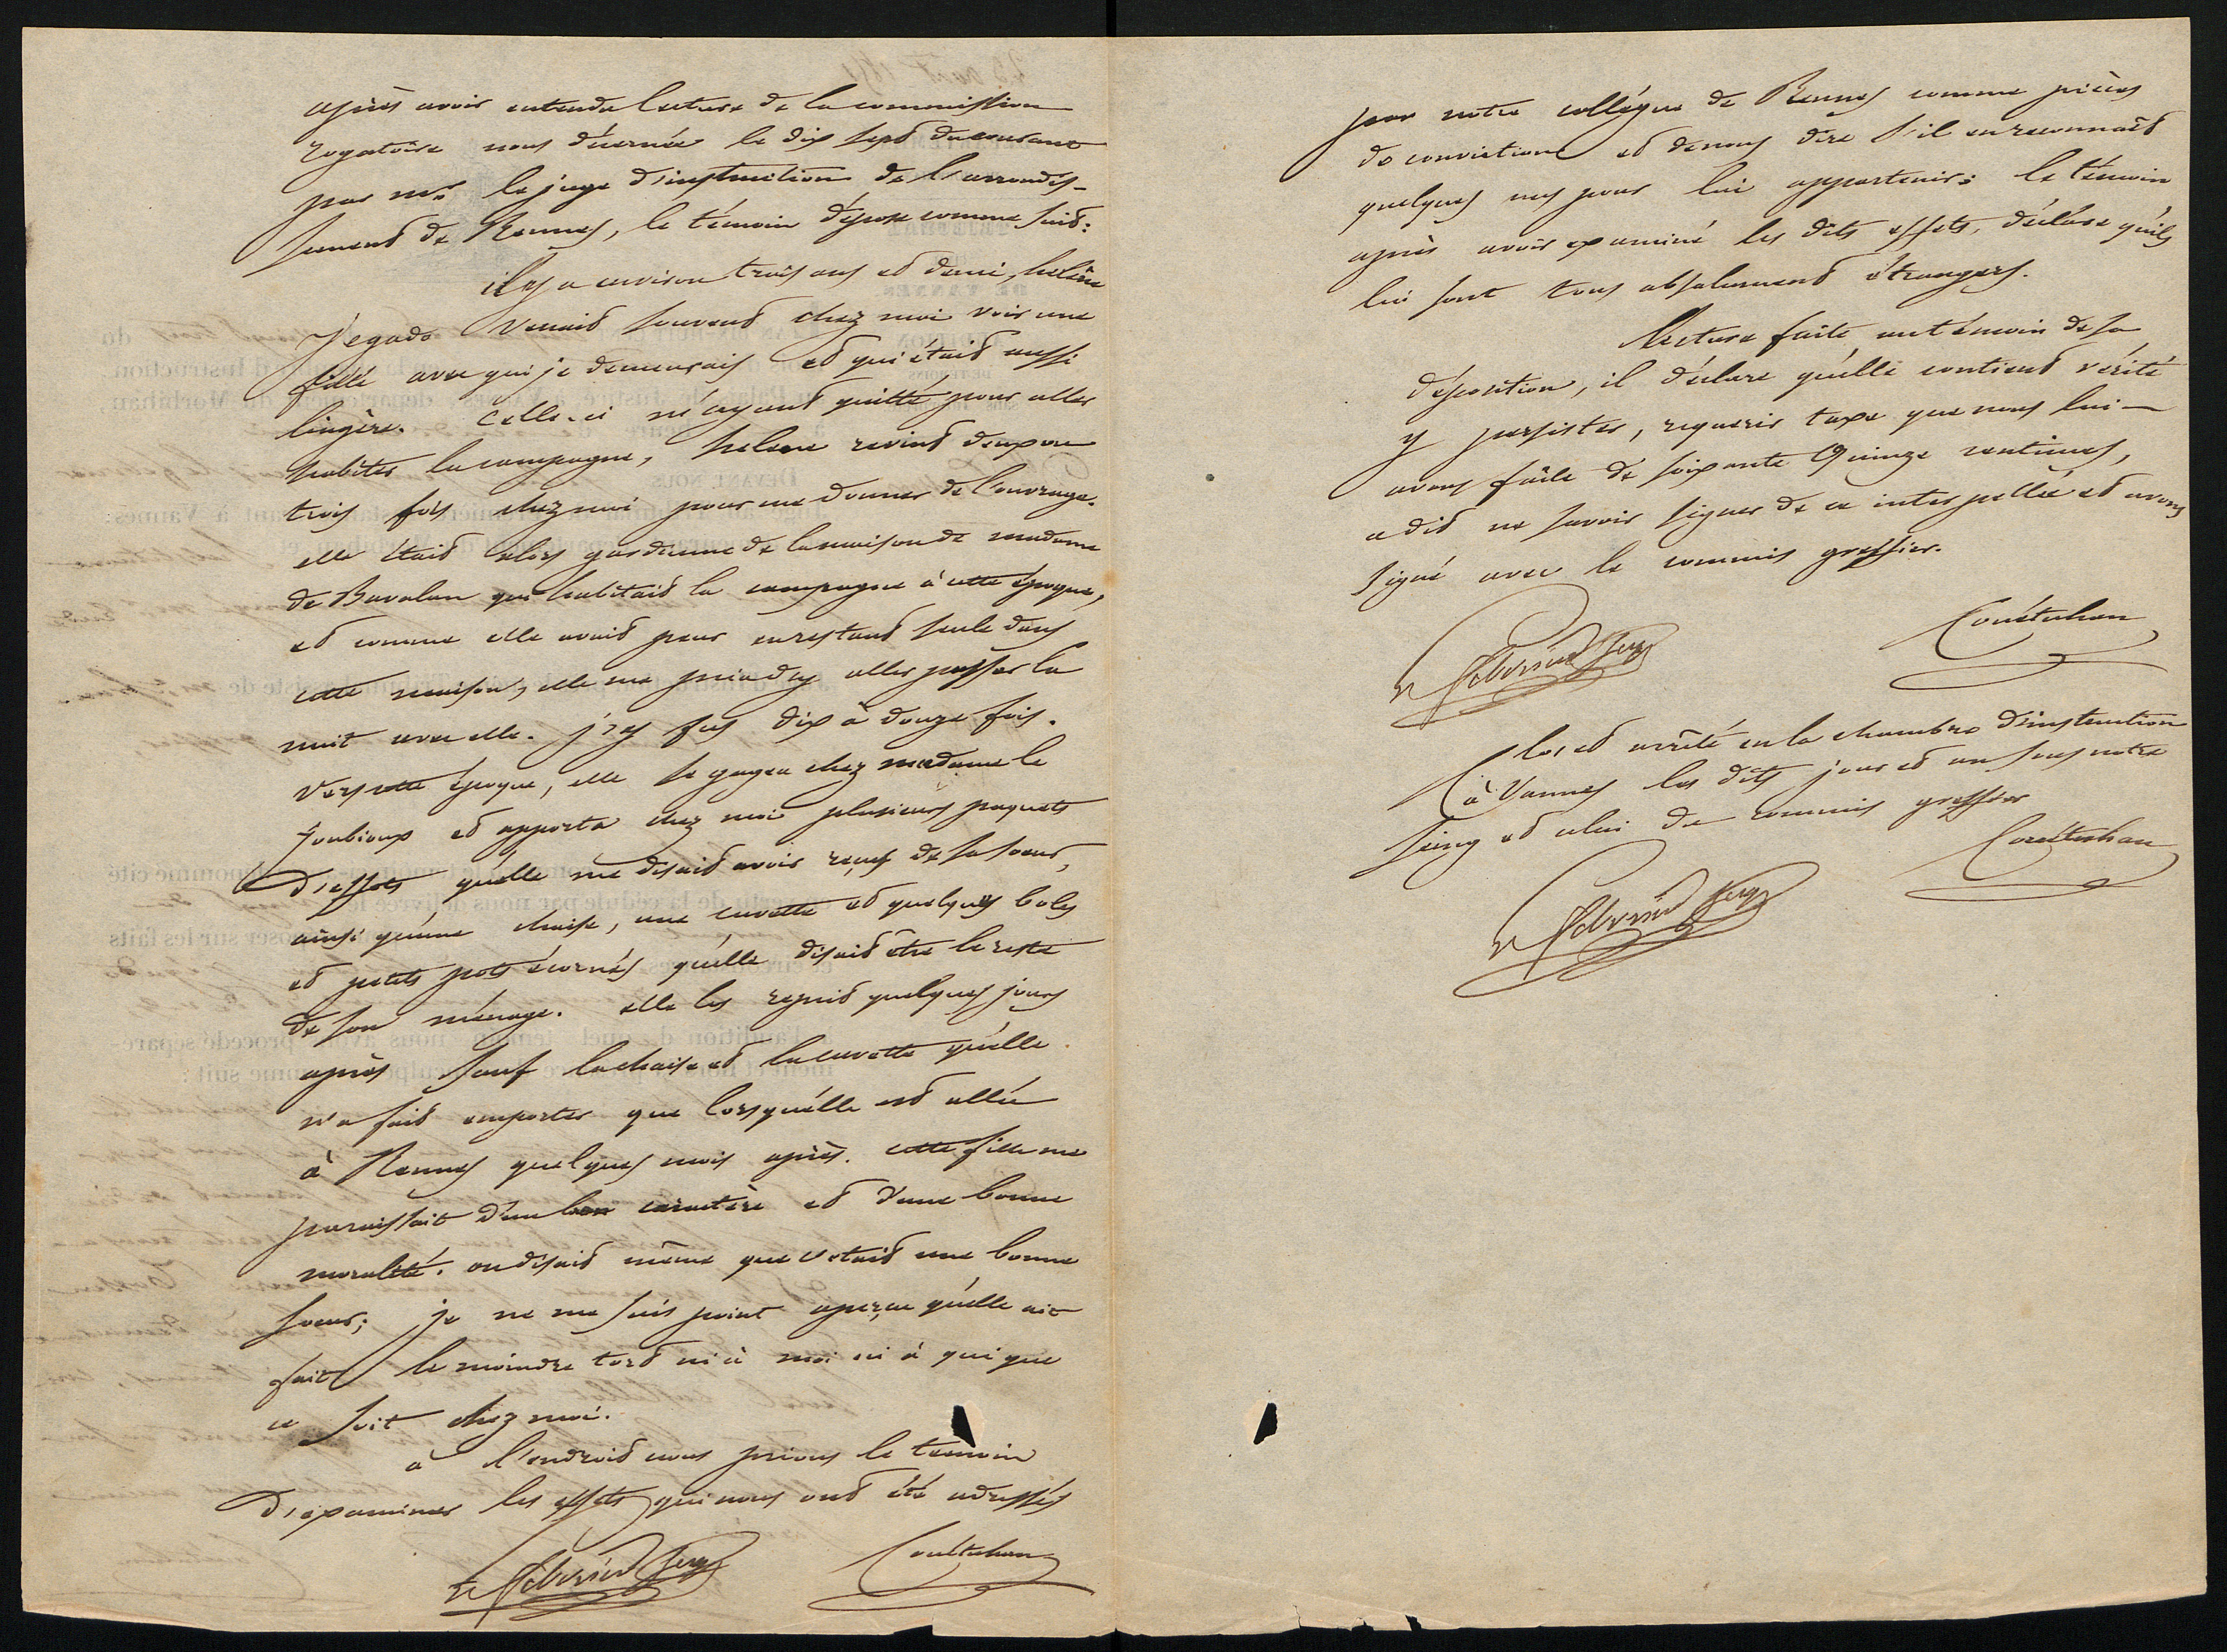 après avoir entendu lecture de la commission
rogatoire nous décernée le dix sept du courant
par mr. le juge d'instruction de l'arrondis-
sement de Rennes, le témoin dépose comme suit:
il y a environ trois ans et demi, helène
Jegado venait souvent chez moi voir une
fille avec qui je demeurais et qui était aussi
lingère. Celle-ci m'ayant quitté pour aller
habiter la campagne, helene revint deux ou
trois fois chez moi pour me donner de l'ouvrage.
elle était alors gardienne de la maison de madame
de Bavalan qui habitait la campagne à cette époque,
et comme elle avait peur en restant seule dans
cette maison, elle me pria d'y aller passer la
nuit avec elle. j'y fus dix à douze fois.
Vers cette époque, elle se gagea chez madame le
Joubioux et apporta chez moi plusieurs paquets
D'effets qu'elle me disait avoir reçus de sa soeur,
ainsi qu'une chaise, une cuvette et quelques bols
et petits pots écornés qu'elle disait être le reste
de son ménage. elle les reprit quelques jours
après sauf la chaise et la cuvette qu'elle
n'a fait emporter que lorsqu'elle est allée
à Rennes quelques mois après. cette fille me
paraissait d'un bon caractère et d'une bonne
moralité. on disait même que c'etait une bonne
soeur; je ne me suis point aperçue qu'elle ait
fait le moindre tord ni à moi ni à qui que
ce soit chez moi.
à l'endroit nous prions le témoin
D'examiner les effets qui nous ont été adressés
Couëtuhan
par notre collègue de Rennes comme pièces
de conviction et de nous dire s'il en reconnait
quelques uns pour lui appartenir: le témoin
après avoir examiné les dits effets, déclare qu'ils
lui sont tous absolument étrangers.
Lecture faite au témoin de sa
déposition, il déclare qu'elle contient vérité
y persister, requerir taxe que nous lui
avons faite de soixante Quinze centimes,
a dit ne savoir signer de ce interpellée et avons
signé avec le commis greffier.
Couëtuhan
Clos et arrêté en la chambre d'instruction
à Vannes les dits jour et an sous notre
seing et celui du commis greffier
Couëtuhan